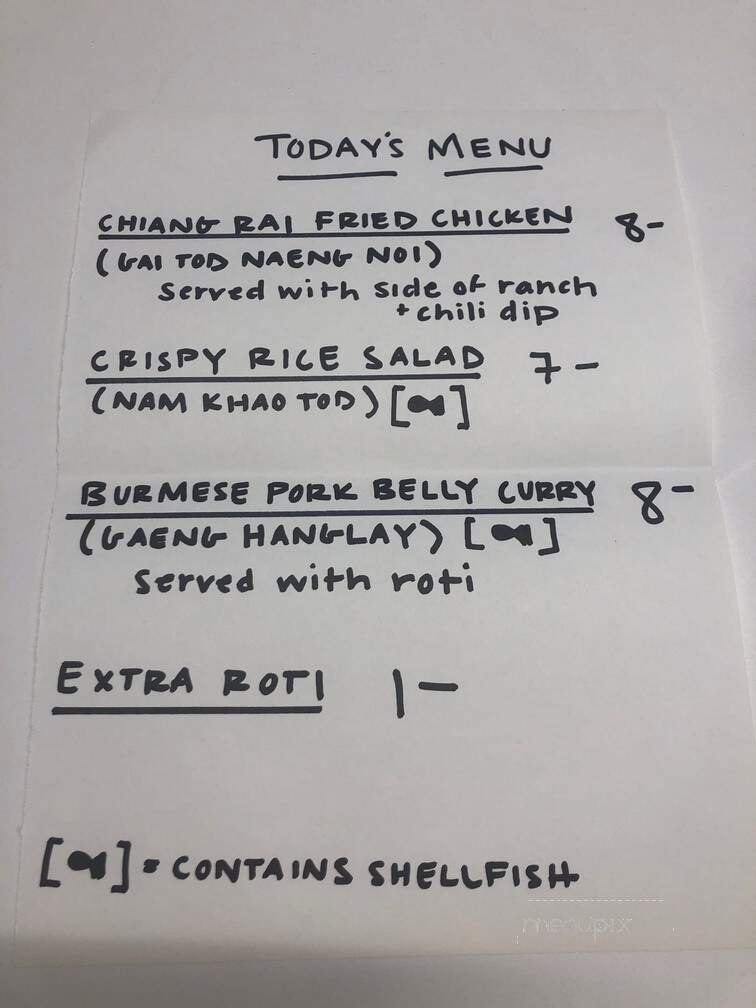 TODAY'S MENU
CHIANG RAI FRIED CHICKEN 8-
(GAI TOD NAENG NOI)
Served with side of ranch
+ chili dip
CRISPY RICE SALAD 7-
(NAM KHAO TOD) []
BURMESE PORK BELLY CURRY 8-
(GAENG HANGLAY) []
Served with roti
EXTRA ROTI 1-
[] = CONTAINS SHELLFISH
menupix